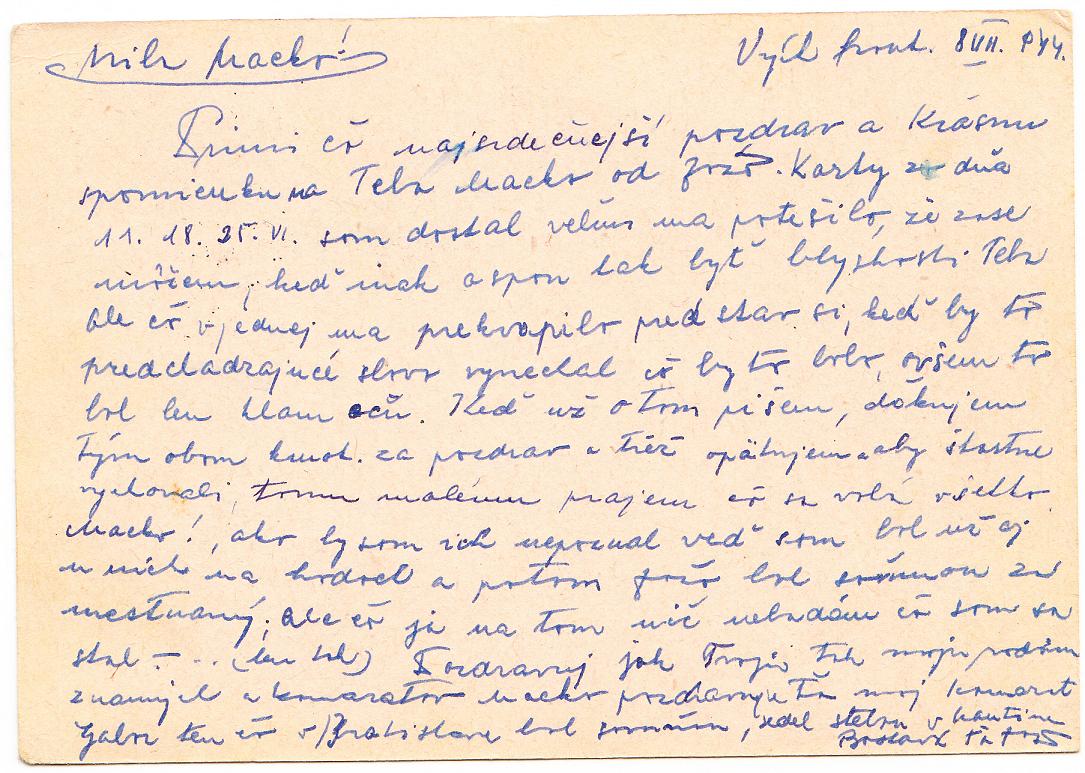 Milá Macko! Vých front. 8VII. 944.
Primi čo najsrdečnejší pozdrav a Krásnu
spomienku na Teba Macko od Jožo. Karty zo dňa
11. 18. 25. VI. som dostal veľmi ma potešilo, že zase
môžem, keď inak aspon tak byť blyskosti Teba
Ale čo v jednej ma prekvapilo predstav si, keď by to
predchadzajucé slovo vynechal čo by to bolo, ovšem to
bol len klam očú. Keď už o tom pišem, ďakujem
tým obom kmot. za pozdrav a tiéž opätujem a aby štastne
vychovali, tomu malému prajem čo sa volá všetko
Macko!, ako by som ich nepoznal veď som bol už aj
u nich na hodoch a potom Jožo bol somnou za
mestnaný, Ale čo ja na tom nič nebadám čo som sa
stal - .. (len ) Pozdravuj jak Tvojú tak moju rodinu
znamých a kamaratov Macko pozdravuje Ťa moj kamarat
Gabor ten čo v Bratislave bol somnou, sedel stebou v kantine
Bozkava Ťa Jožo